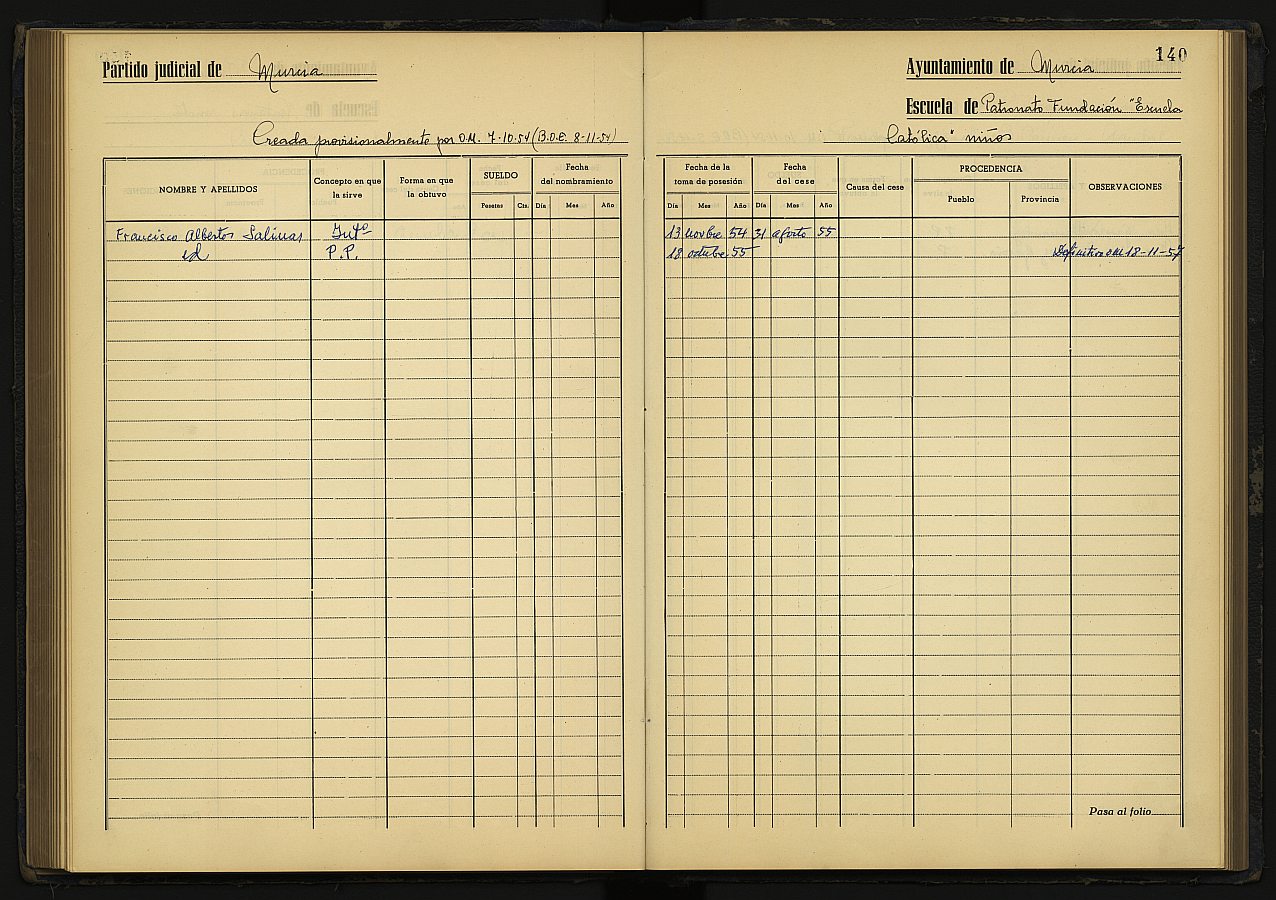 Partido judicial de Murcia
Creada provisionalmente por O.M. 7-10-54 (B.O.E. 8-11-54)
NOMBRE Y APELLIDOS
Concepto en que
la sirve
Forma en que
la obtuvo
SUELDO
Pesetas Cts.
Fecha
del nombramiento
Día Mes Año
Francisco Albertos Salinas Intº
id P.P.
140
Ayuntamiento de Murcia
Escuela de Patronato Fundación "Escuela
Católica" niños
Fecha de la
toma de posesión
Día Mes Año
Fecha
del cese
Día Mes Año
Causa del cese
PROCEDENCIA
Pueblo Provincia
OBSERVACIONES
13 novbre 54 31 agosto 55
18 octubre 55 Definitivo OM 18-11-57
Pasa al folio